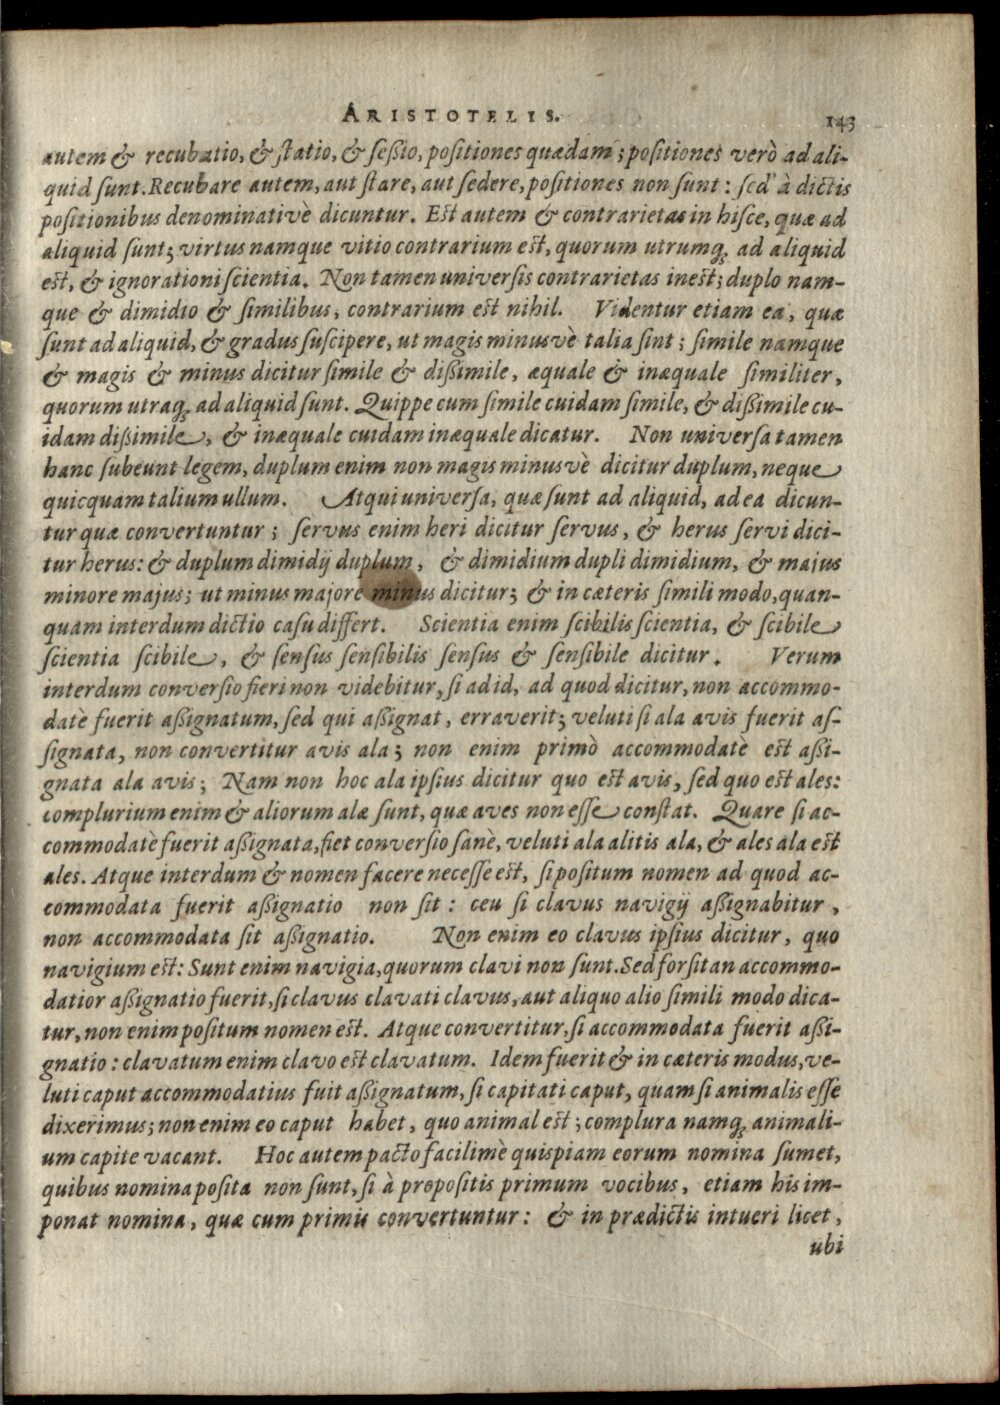 ARISTOTELIS. 143
autem & recubatio, & statio, & seßio, positiones quædam; positiones verò ad ali-
quid sunt. Recubare autem, aut stare, aut sedere, positiones non sunt: sed à dictis
positionibus denominativè dicuntur. Est autem & contrarietas in hisce, quæ ad
aliquid sunt; virtus namque vitio contrarium est, quorum utrumq; ad aliquid
est, & ignorationi scientia. Non tamen universis contrarietas inest; duplo nam-
que & dimidio & similibus, contrarium est nihil. Videntur etiam ea, quæ
sunt ad aliquid, & gradus suscipere, ut magis minusvè talia sint; simile namque
& magis & minus dicitur simile & dißimile, æquale & inæquale similiter,
quorum utraq; ad aliquid sunt. Quippe cum simile cuidam simile, & dißimile cu-
idam dißimile, & inæquale cuidam inæquale dicatur. Non universa tamen
hanc subeunt legem, duplum enim non magis minusvè dicitur duplum, neque
quicquam talium ullum. Atqui universa, quæ sunt ad aliquid, ad ea dicun-
tur quæ convertuntur; servus enim heri dicitur servus, & herus servi dici-
tur herus: & duplum dimidij duplum, & dimidium dupli dimidium, & majus
minore majus; ut minus majore minus dicitur; & in cæteris simili modo, quan-
quam interdum dictio casu differt. Scientia enim scibilis scientia, & scibile
scientia scibile, & sensus sensibilis sensus & sensibile dicitur. Verum
interdum conversio fieri non videbitur, si ad id, ad quod dicitur, non accommo-
datè fuerit aßignatum, sed qui aßignat, erraverit; veluti si ala avis fuerit as-
signata, non convertitur avis ala; non enim primò accommodatè est aßi-
gnata ala avis; Nam non hoc ala ipsius dicitur quo est avis, sed quo est ales:
complurium enim & aliorum alæ sunt, quæ aves non esse constat. Quare si ac-
commodatè fuerit aßignata, fiet conversio sanè, veluti ala alitis ala, & ales ala est
ales. Atque interdum & nomen facere necesse est, si positum nomen ad quod ac-
commodata fuerit aßignatio non sit: ceu si clavus navigij aßignabitur,
non accommodata sit aßignatio. Non enim eo clavus ipsius dicitur, quo
navigium est: Sunt enim navigia, quorum clavi non sunt. Sed forsitan accommo-
datior aßignatio fuerit, si clavus clavati clavus, aut aliquo alio simili modo dica-
tur, non enim positum nomen est. Atque convertitur, si accommodata fuerit aßi-
gnatio: clavatum enim clavo est clavatum. Idem fuerit & in cæteris modus, ve-
luti caput accommodatius fuit aßignatum, si capitati caput, quam si animalis esse
dixerimus; non enim eo caput habet, quo animal est; complura namq; animali-
um capite vacant. Hoc autem pacto facilimè quispiam eorum nomina sumet,
quibus nomina posita non sunt, si à propositis primum vocibus, etiam his im-
ponat nomina, quæ cum primis convertuntur: & in prædictis intueri licet,
ubi